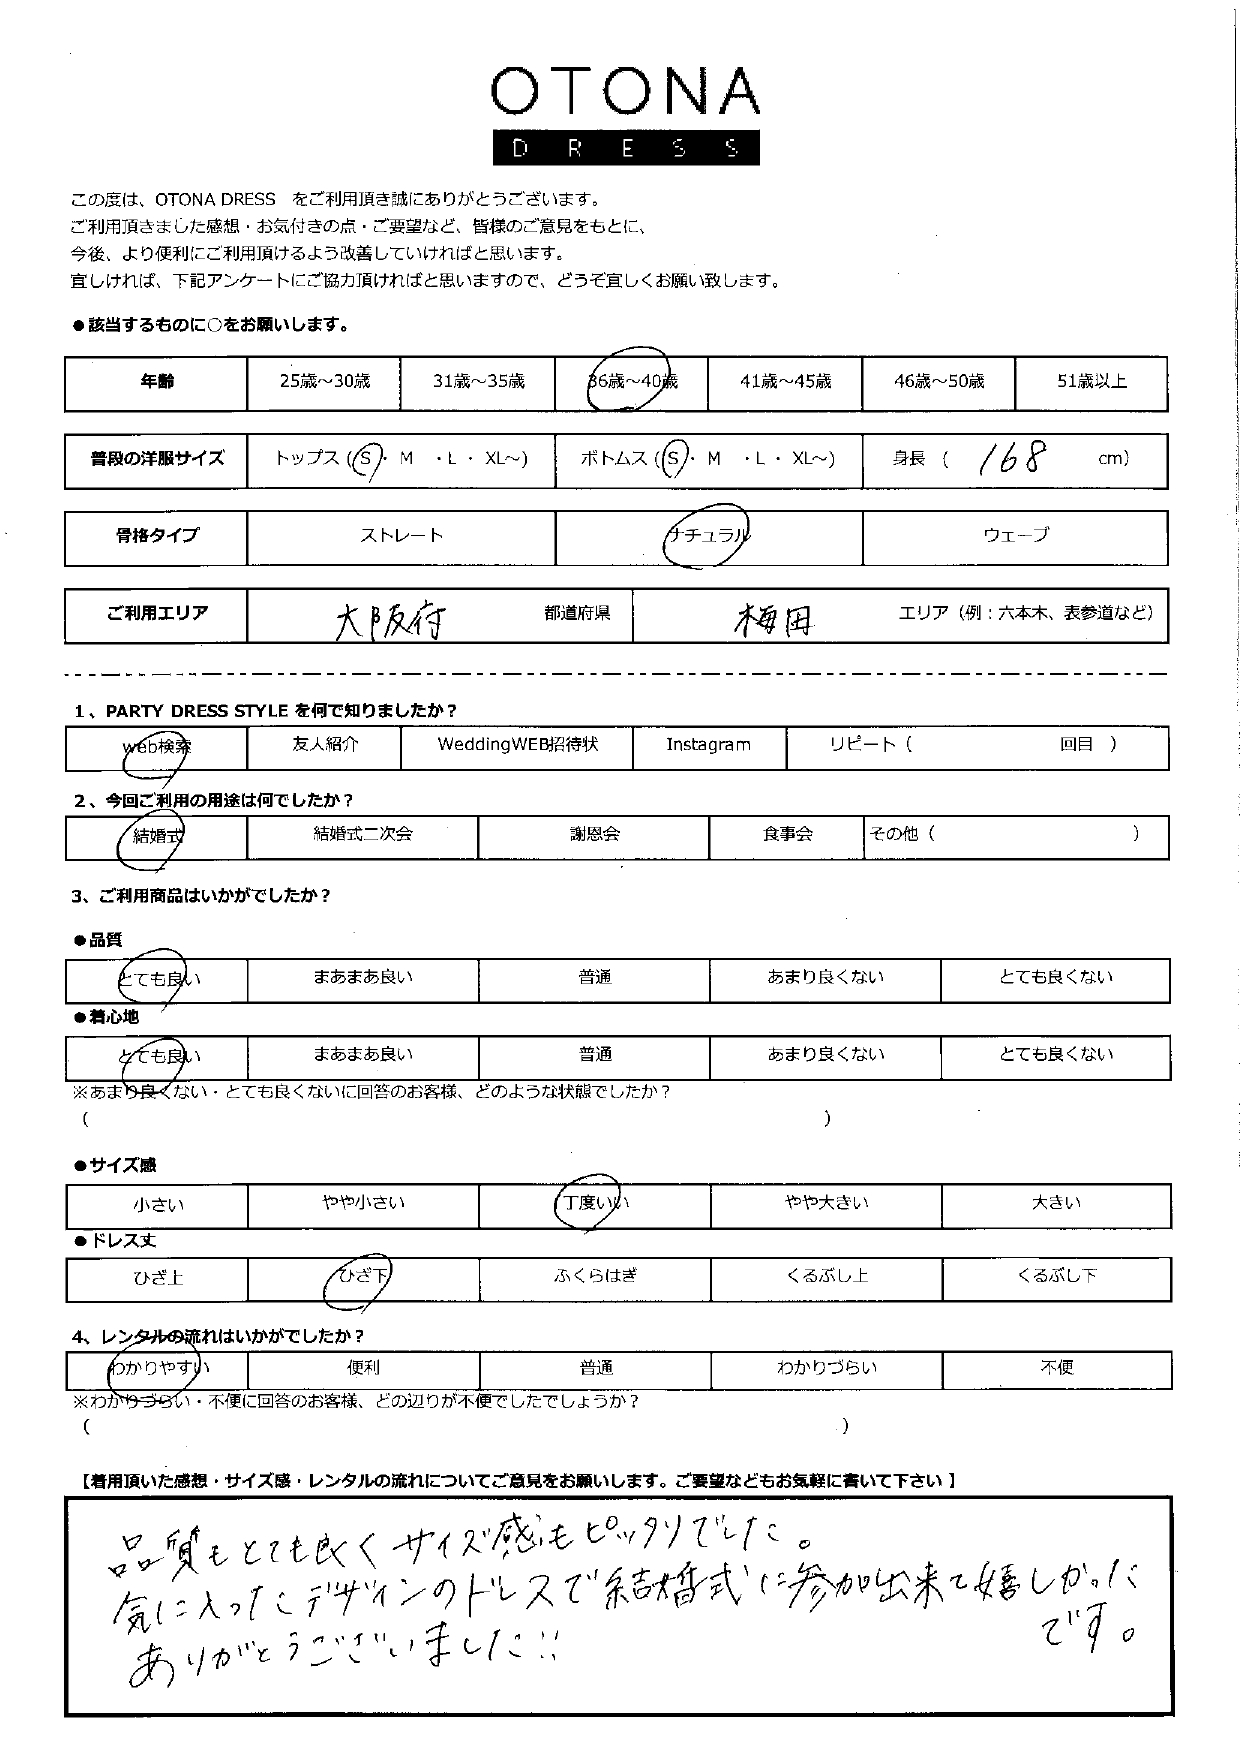 OTONA
DRESS
この度は、OTONA DRESS　をご利用頂き誠にありがとうございます。
ご利用頂きました感想・お気付きの点・ご要望など、皆様のご意見をもとに、
今後、より便利にご利用頂けるよう改善していければと思います。
宜しければ、下記アンケートにご協力頂ければと思いますので、どうぞ宜しくお願い致します。
●該当するものに○をお願いします。
年齢 25歳～30歳 31歳～35歳 36歳～40歳 41歳～45歳 46歳～50歳 51歳以上
普段の洋服サイズ トップス (S・ M ・L ・ XL～) ボトムス (S・ M ・L ・ XL～) 身長 ( 168 cm)
骨格タイプ ストレート ナチュラル ウェーブ
ご利用エリア 大阪府 都道府県 梅田 エリア（例：六本木、表参道など）
1、PARTY DRESS STYLE を何で知りましたか？
web検索 友人紹介 WeddingWEB招待状 Instagram リピート（ 回目 ）
2、今回ご利用の用途は何でしたか？
結婚式 結婚式二次会 謝恩会 食事会 その他（ ）
3、ご利用商品はいかがでしたか？
●品質
とても良い まあまあ良い 普通 あまり良くない とても良くない
●着心地
とても良い まあまあ良い 普通 あまり良くない とても良くない
※あまり良くない・とても良くないに回答のお客様、どのような状態でしたか？
（ ）
●サイズ感
小さい やや小さい 丁度いい やや大きい 大きい
●ドレス丈
ひざ上 ひざ下 ふくらはぎ くるぶし上 くるぶし下
4、レンタルの流れはいかがでしたか？
わかりやすい 便利 普通 わかりづらい 不便
※わかりづらい・不便に回答のお客様、どの辺りが不便でしたでしょうか？
（ ）
【着用頂いた感想・サイズ感・レンタルの流れについてご意見をお願いします。ご要望などもお気軽に書いて下さい 】
品質もとても良く サイズ感もピッタリでした。
気に入ったデザインのドレスで結婚式に参加出来て嬉しかった
です。
ありがとうございました!!